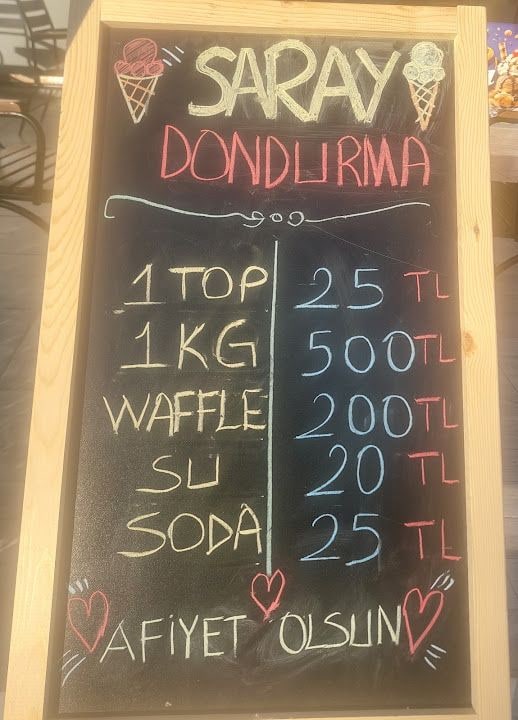 SARAY
DONDURMA
1 TOP 25 TL
1 KG 500 TL
WAFFLE 200 TL
SU 20 TL
SODA 25 TL
AFİYET OLSUN